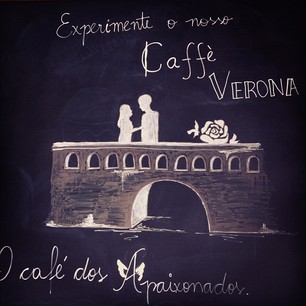 Experimente o nosso
Caffè
VERONA
O café dos Apaixonados.